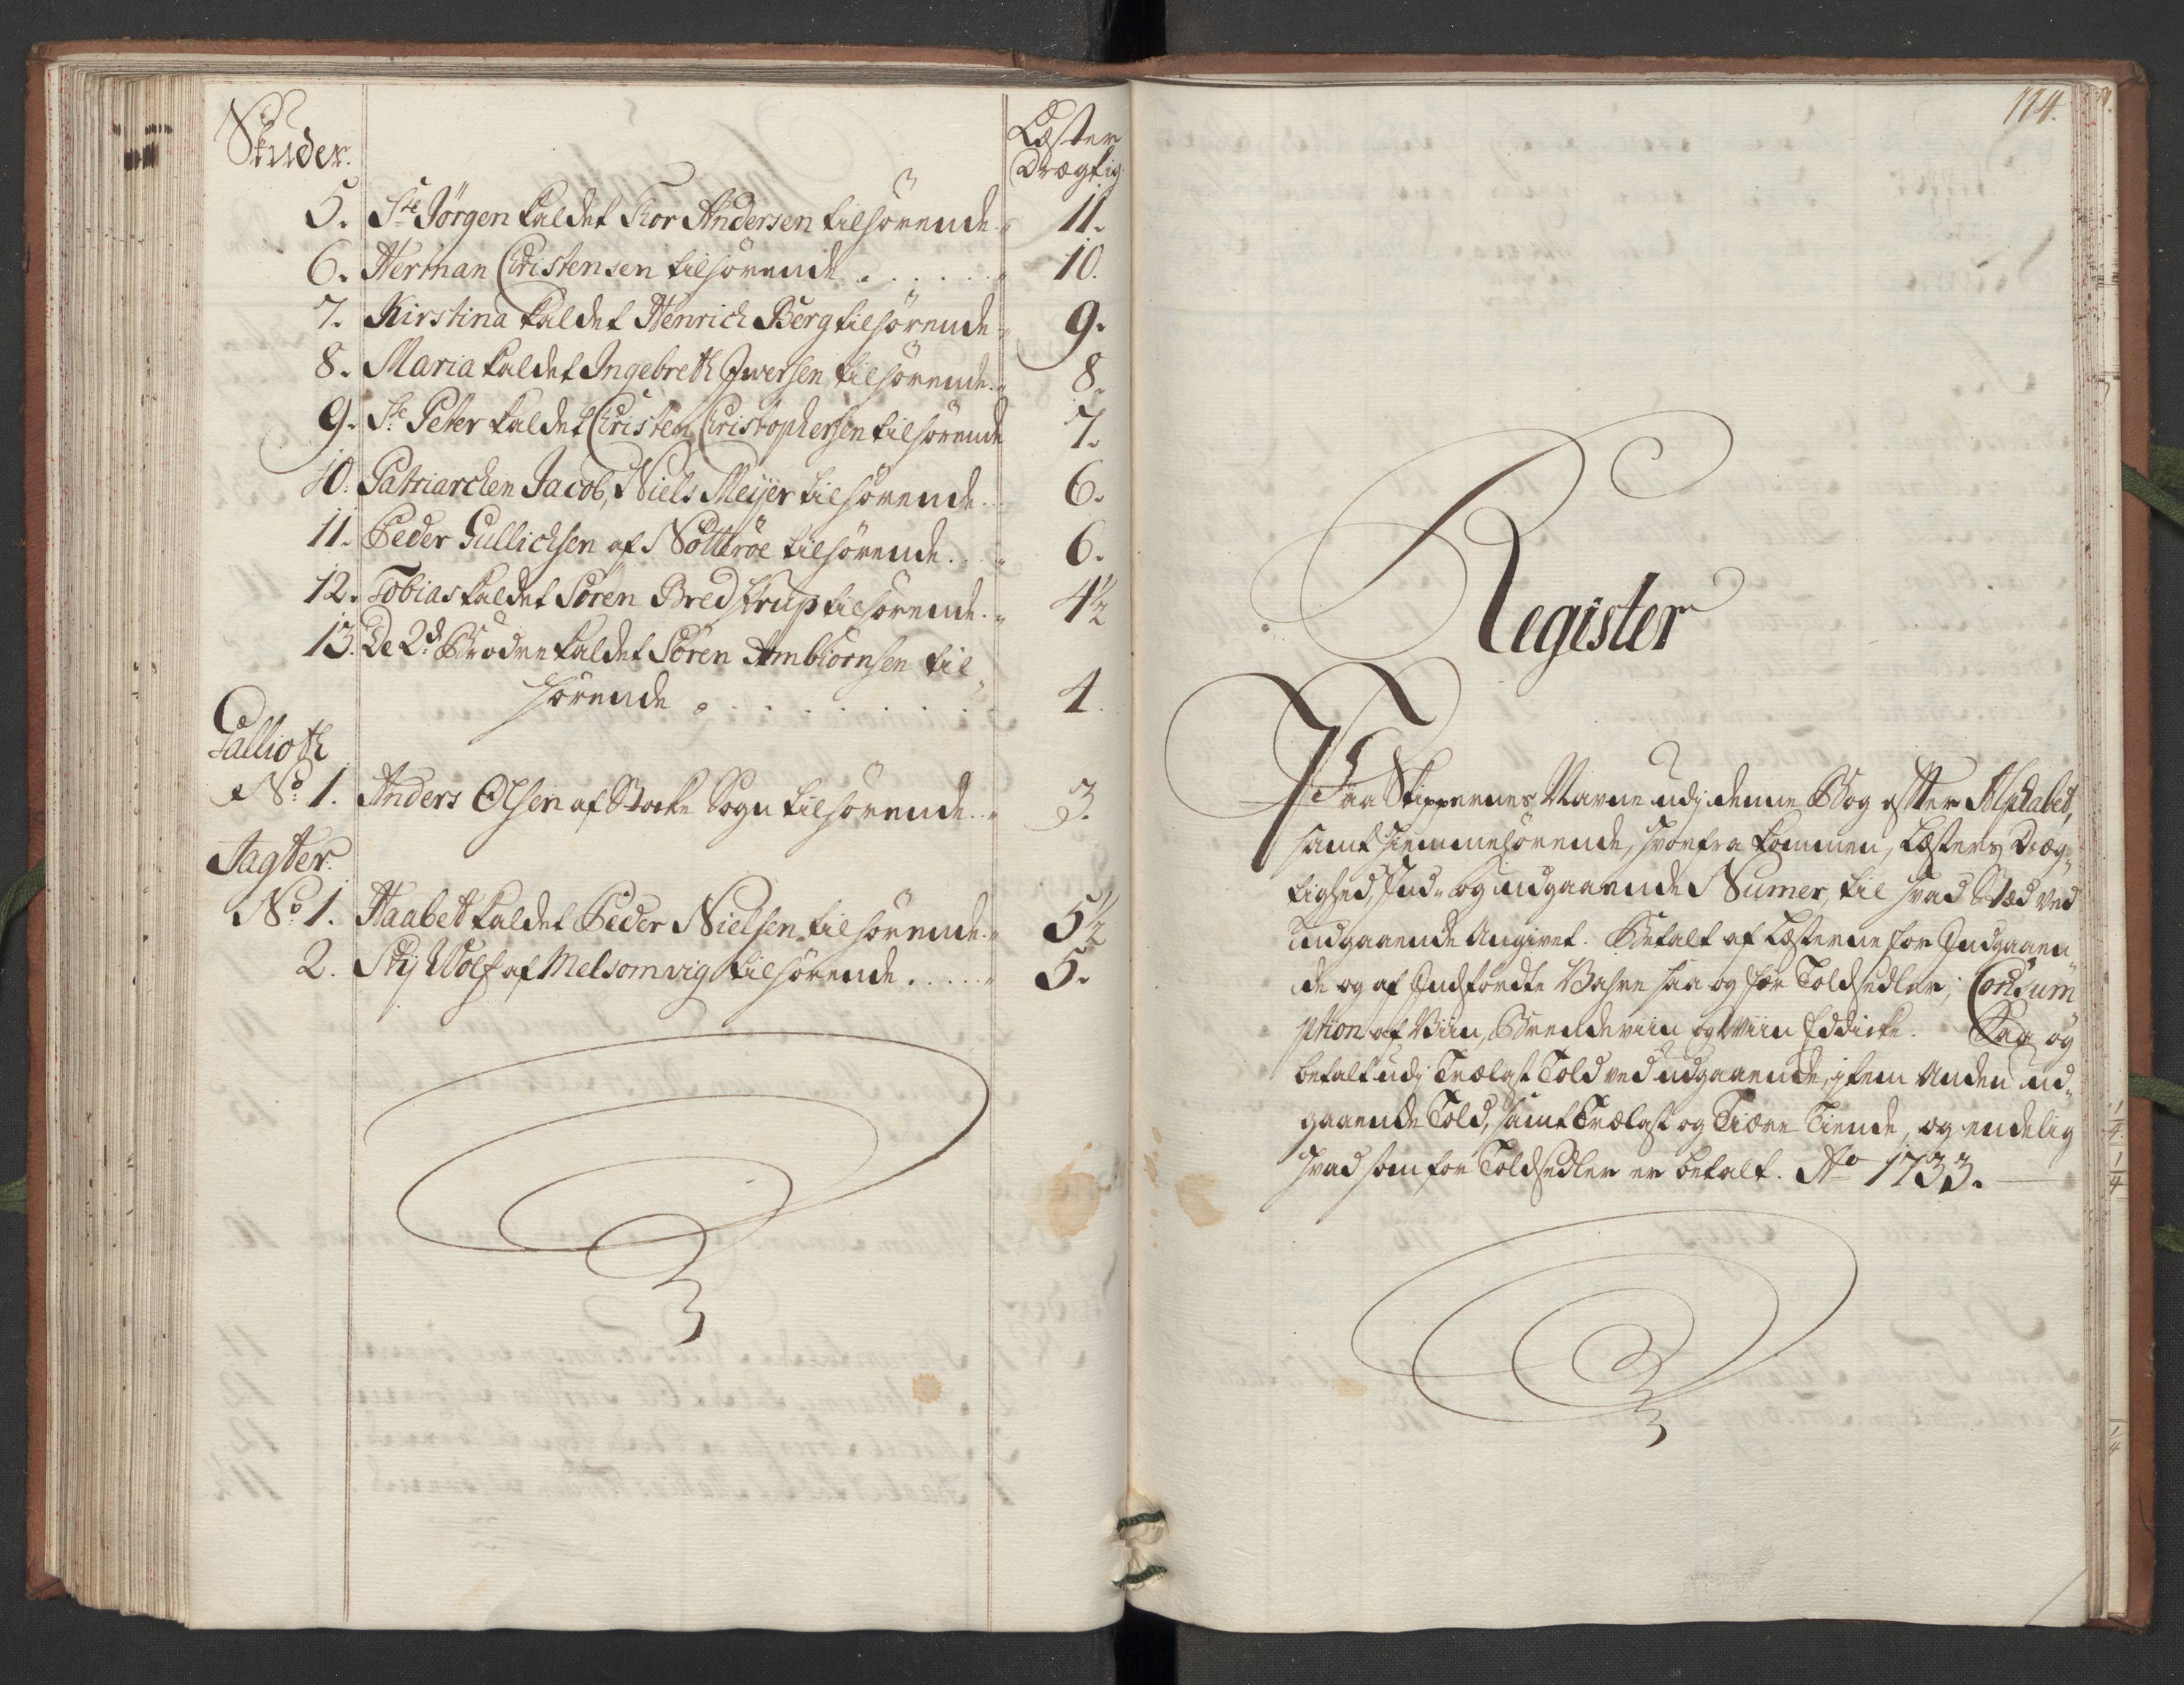 Skuder.
Læster
Drægtig
5. Ste Jörgen kaldet Thor Andersen tilhörende. 11.
6. Herman Christensen tilhörende . . . . . . 10.
7. Kirstina kaldet Henrich Berg tilhörende 9.
8. Maria kaldet Ingebreth Iversen tilhörende. 8.
9. Ste Peter kaldet Christen Christophersen tilhörende 7.
10. Patriarchen Jacob, Niels Meijer tilhörende. 6.
11. Peder Gullichsen af Nötteröe tilhörende. . 6.
12. Tobias kaldet Sören Bredstrup tilhörende. 4½
13. De 2de Brödre kaldet Sören Ambiörnsen til
hörende . . . . . . . . 4.
Gallioth
No 1. Anders Olsen af Stocke Sogn tilhörende. 3.
Jagter.
No 1. Haabet kaldet Peder Nielsen tilhörende. 5½
2. Stij Wolf af Melsomvig tilhörende. . . . . 5.
114.
Register
Paa Skippernes Navne udj denne Bog efter Alphabet,
samt hiemmehörende, hvorfra kommen, Læsters Dræg„
tighed, Ind„ og udgaaende Numer, til hvad Stæd ved
Uudgaaende Angivet. Betalt af Læsterne for Indgaaen„
de og af Indförte Vahre saa og for Toldsedler, Consum
ption af Viin, Brendeviin og Viin Eddicke. Saa og
betalt udj Trælast Told ved udgaaende, item Anden ud„
gaaende Told, samt Trælast og Tiære Tiende, og endelig
hvad som for Toldsedler er betalt. Ao 1733.